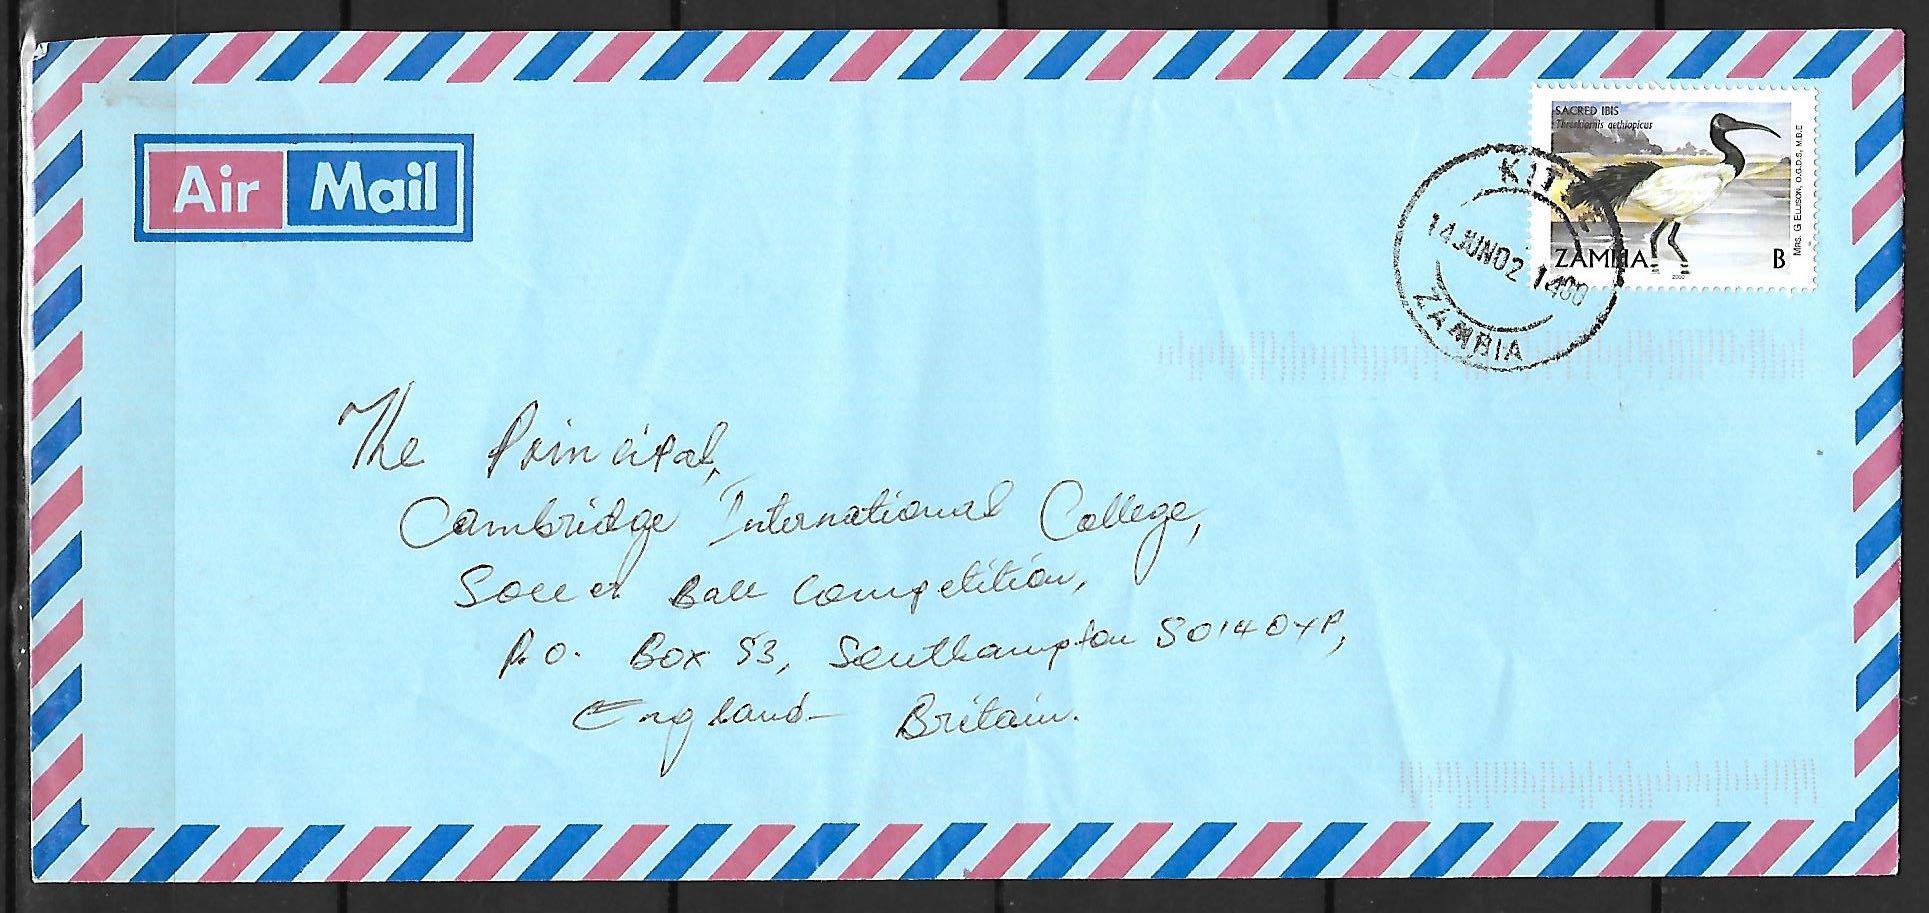 Air Mail
SACRED IBIS
Threskiornis aethiopicus
MRS. G ELLISON, O.G.D.S, M.B.E
ZAMBIA B
2000
14 JUN 02 1400
ZAMBIA
The Principal,
Cambridge International College,
Soccer Ball Competition,
P.O. Box 53, Southampton SO14 0YP,
England - Britain.